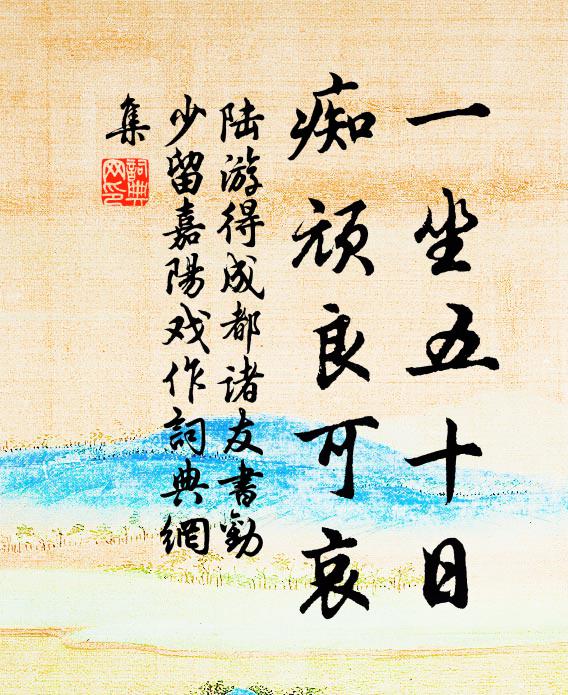 一坐五十日
痴顽良可哀
陆游得成都诸友书劝
少留嘉陽戏作詞典網
集
詞典
网印